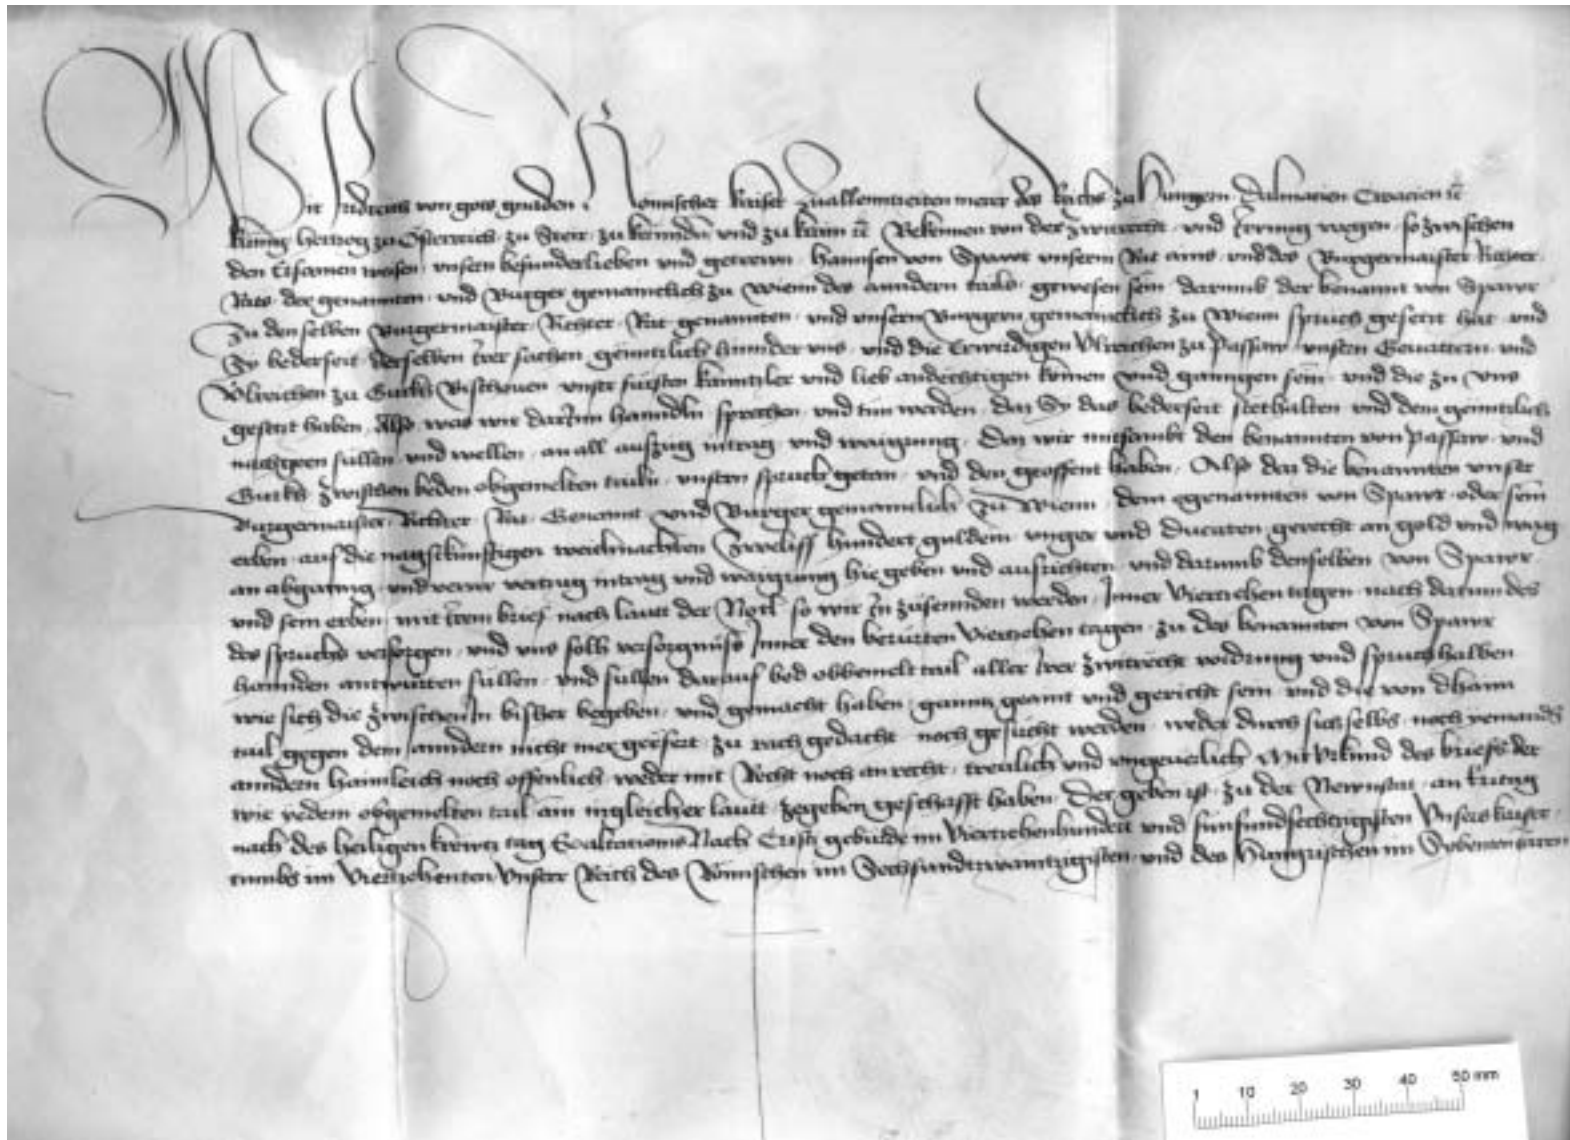 Wir Fridreich von gots gnaden Romischer keiser zuallenntzeiten merer des Reichs zu Hungern Dalmacien Croacien etc
kunig Hertzog zu Osterreich zu Steir zu kernnden und zu krain etc Bekennen von der zwitrecht und irrung wegen so zwischen
den Ersamen weisen unsern besunderlieben und getrewn Hannsen von Spaur unserm Rat ains und des Burgermaister Richter
Rats der genannten und Burger gemainclich zu Wienn des anndern tails gewesen sein darumb der benannt von Spaur
zu denselben Burgermaister Richter Rat genannten und unsern Burgern gemainclich zu Wienn spruch gesetzt hat und
Sy bederseit derselben irer sachen genntzlich hinnder uns und die Erwirdigen Ulreichen zu Passaw unsern Gevattern und
Ulreichen zu Gurkh Bischoven unser fürsten kanntzler und lieb andechtigen komen und ganngen sein und die zu uns
gesetzt haben Also was wir darinn hanndln sprechen und tun werden daz Sy das bederseit stethalten und dem genntzlich
nachgeen sullen und wellen an all auszug intrag und waigrung Daz wir mitsambt den benannten von Passaw und
Gurkh zwischen beden obgemelten tailn unsern spruch getan und den geoffent haben Also daz die benannten unser
Burgermaister Richter Rat Genannt und Burger gemainclich zu Wienn dem egenannten von Spaur oder sein
erben auf die nagstkunftigen weichnachten Zweliff hundert guldein unger und ducaten gerecht an gold und wag
an abganng und verrer vertzug intrag und waigrung hie geben und ausrichten und darumb denselben von Spaur
und sein erben mit irem brief nach lautt der Notl so wir in zusennden werden Inner Viertzehen tagen nach datum des
des spruchs versorgen und uns solh versorgnüss Inner den berürten Viertzehen tagen zu des benannten von Spaur
hannden antwurten sullen und sullen darauf bed obbemelt tail aller irer zwitrecht widrung und spruch halben
wie sich die zwischen In bisher begeben und gemacht haben gannz geaint und gericht sein und die von dhainn
tail gegen dem anndern nicht mer geefert zu rach gedacht noch gesucht werden weder durch sich selbs noch yemands
anndern haimleich noch offenlich weder mit Recht noch an recht treulich und ungeverlich Mit Urkund des briefs der
wir yedem obgemelten tail ain in gleicher lautt zegeben geschafft haben Der geben ist zu der Newnstat an Fritag
nach des heiligen krewtz tag Exaltacionis Nach Cristi geburde im Viertzehenhundert und funfundsechtzigisten Unsers kaiser
tumbs im Viertzehenten Unserr Reich des Römischen im Sechsundtzwantzigisten und des Hungrischen im Sybennten Jaren
1 10 20 30 40 50 mm